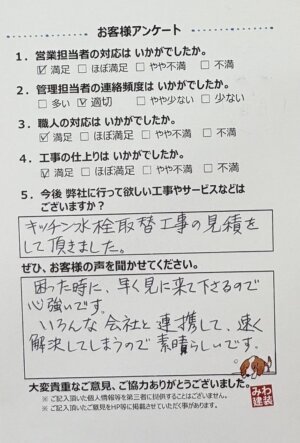 お客様アンケート
1．営業担当者の対応は いかがでしたか。
☑ 満足 □ ほぼ満足 □ やや不満 □ 不満
2．管理担当者の連絡頻度は いかがでしたか。
□ 多い ☑ 適切 □ やや少ない □ 少ない
3．職人の対応は いかがでしたか。
☑ 満足 □ ほぼ満足 □ やや不満 □ 不満
4．工事の仕上りは いかがでしたか。
☑ 満足 □ ほぼ満足 □ やや不満 □ 不満
5．今後 弊社に行って欲しい工事やサービスなどは
ございますか？
キッチン水栓取替工事の見積を
して頂きました。
ぜひ、お客様の声を聞かせてください。
困った時に、早く見に来て下さるので
心強いです。
いろんな会社と連携して、速く
解決してしまうので素晴らしいです。
大変貴重なご意見、ご協力ありがとうございました。
※ ご記入頂いた個人情報等を第三者に提供することはございません。
※ ご記入頂いたご意見をHP等に掲載させていただく事があります。
みわ
建装